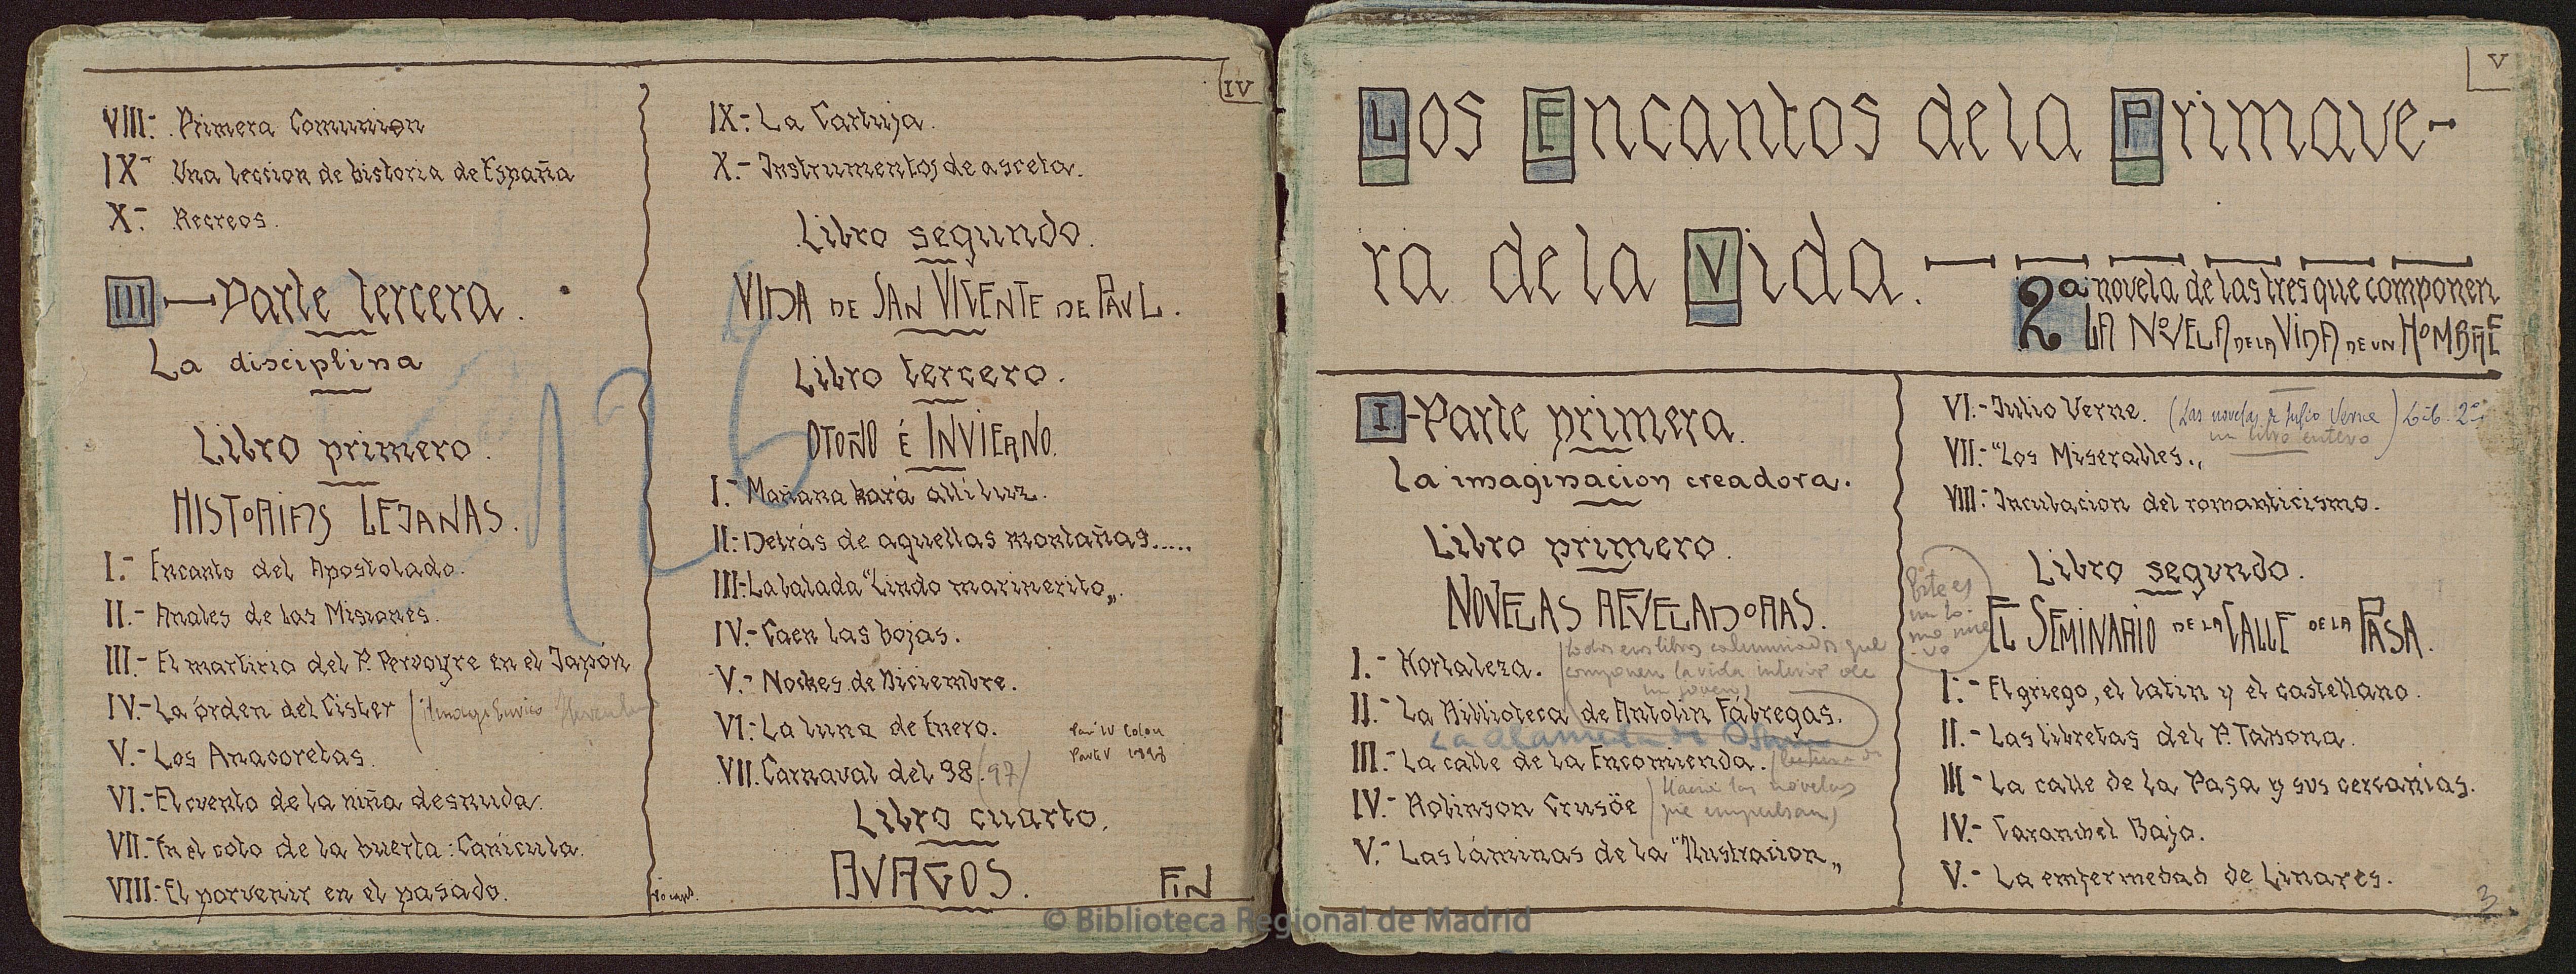 IV
VIII.- Primera Comunion
IX- Una leccion de historia de España
X.- Recreos.
III - Parte tercera.
La disciplina
Libro primero.
HISTORIAS LEJANAS.
I.- Encanto del Apostolado.
II.- Anales de las Misiones.
III.- El martirio del P. Pervoyre en el Japón
IV.- La órden del Cister
V.- Los Anacoretas.
VI.- El cuento de la niña desnuda.
VII.- En el coto de la huerta: Canícula.
VIII.- El porvenir en el pasado.
IX.- La Cartuja.
X.- Instrumentos de asceta.
Libro segundo.
VIDA DE SAN VICENTE DE PAUL.
Libro tercero.
OTOÑO É INVIERNO.
I.- Mañana hará allí luz.
II.- Detrás de aquellas montañas.....
III.- La balada "Lindo marinerito„.
IV.- Caen las hojas.
V.- Noches de Diciembre.
VI.- La luna de Enero.
VII. Carnaval del 98 (97)
Part IV Colon
Parte V 1898
Libro cuarto.
AVAGOS.
FIN
126
V
Los Encantos de la Primave-
ra de la Vida.
2ª novela de las tres que componen
LA NOVELA DE LA VIDA DE UN HOMBRE
I.- Parte primera.
La imaginacion creadora.
Libro primero.
NOVELAS REVELADORAS.
I.- Hortaleza. (todos esos libros calumniados que
componen la vida interior de
un joven)
II.- La Biblioteca de Antolín Fábregas.
La Alameda de Osuna
III.- La calle de la Encomienda.
IV.- Robinson Crusöe (Hacia las novelas
que empulsan)
V.- Las láminas de la "Ilustracion„
VI.- Julio Verne. (Las novelas de Julio Verne) Lib. 2º
un libro entero
VII.- "Los Miserables.„
VIII.- Inculacion del romanticismo.
Libro segundo.
Este es
un to-
mo nue
vo
EL SEMINARIO DE LA CALLE DE LA PASA.
I.- El griego, el latin y el castellano.
II.- Las libretas del P. Tabona.
III- La calle de la Pasa y sus cercanías.
IV.- Caranchel Bajo.
V.- La enfermedad de Linares.
3
© Biblioteca Regional de Madrid